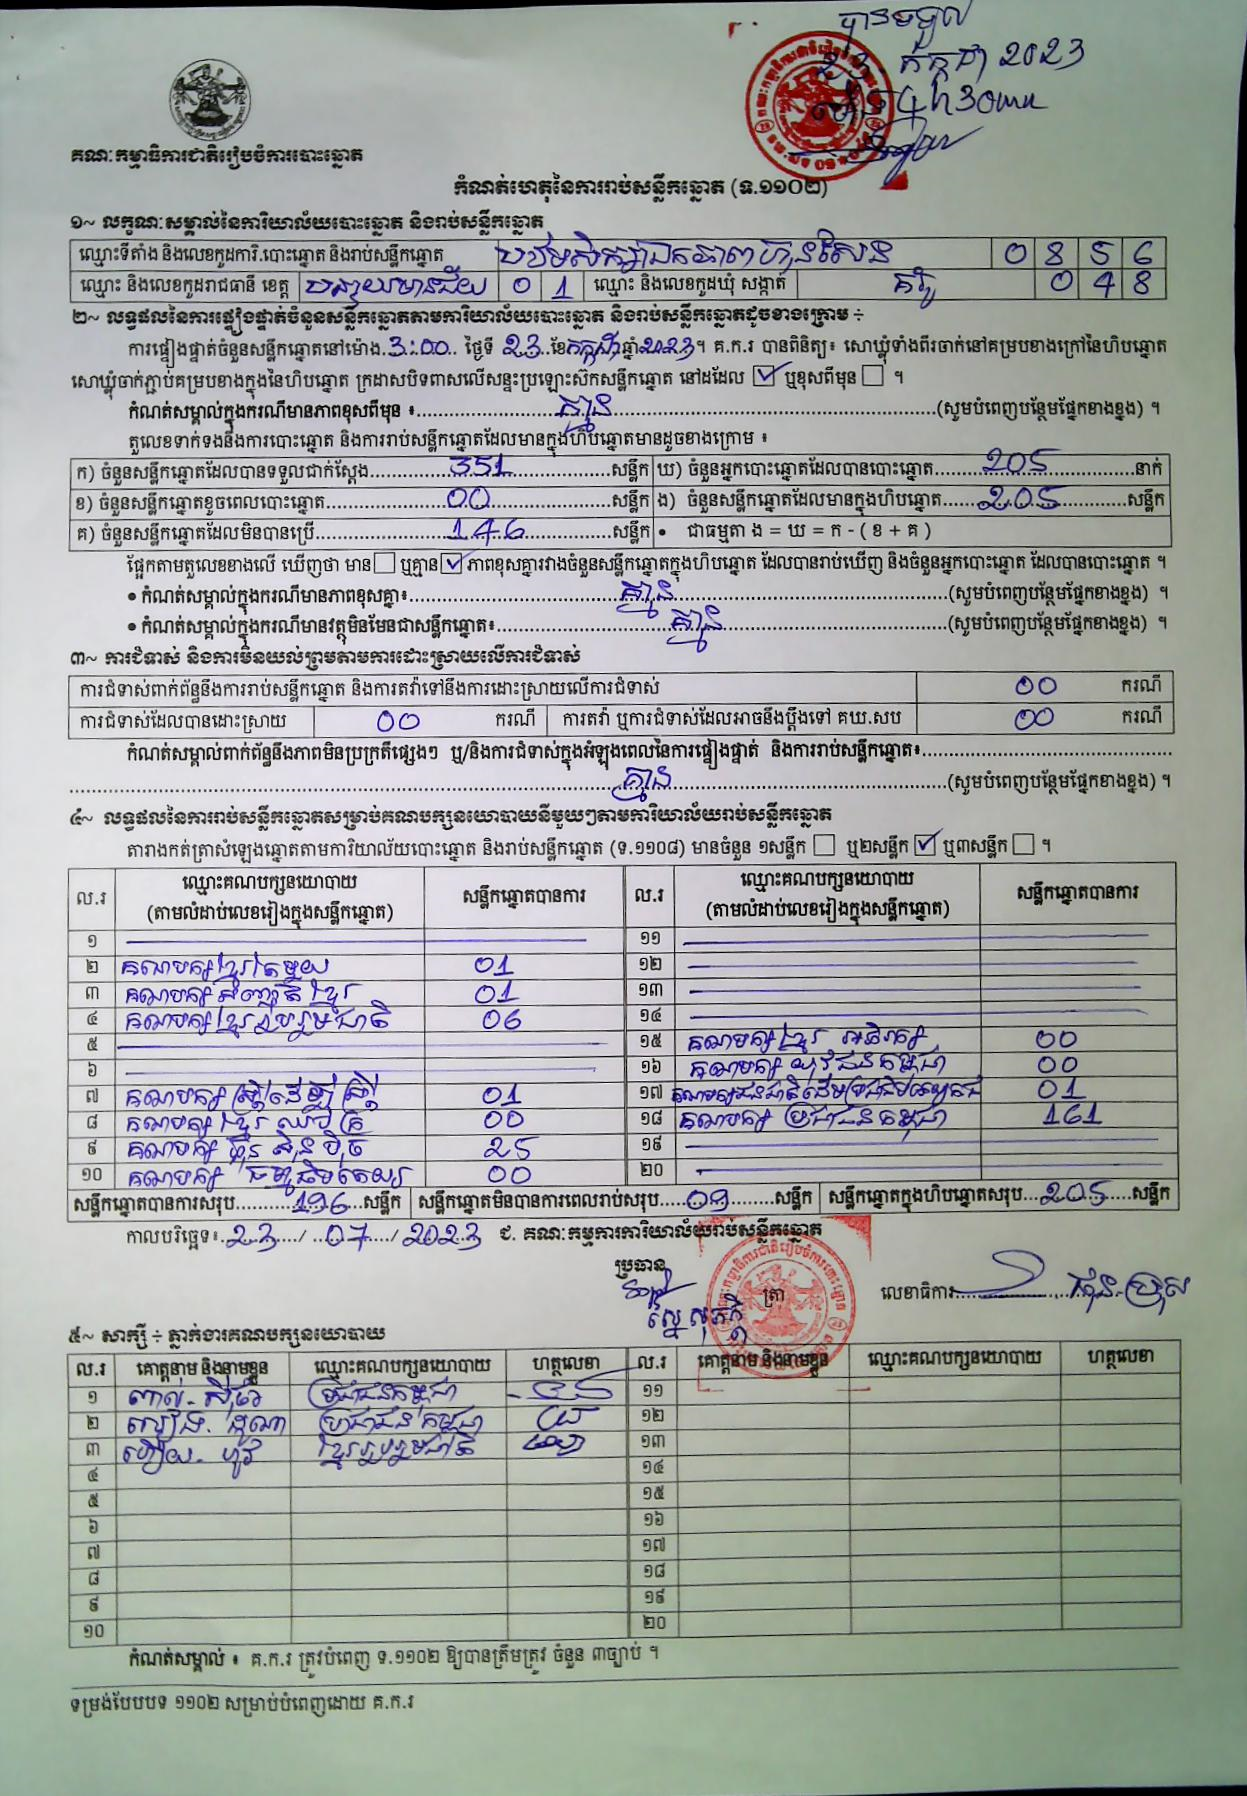 បានទទួល
23 កក្កដា 2023
ម៉ោង 4h30mn
គណៈកម្មាធិការជាតិរៀបចំការបោះឆ្នោត
កំណត់ហេតុនៃការរាប់សន្លឹកឆ្នោត (ទ.១១០២)
១~ លក្ខណៈសម្គាល់នៃការិយាល័យបោះឆ្នោត និងរាប់សន្លឹកឆ្នោត
ឈ្មោះទីតាំង និងលេខកូដការិ.បោះឆ្នោត និងរាប់សន្លឹកឆ្នោត បឋមសិក្សាឯកភាពហ៊ុនសែន 0 8 5 6
ឈ្មោះ និងលេខកូដរាជធានី ខេត្ត បន្ទាយមានជ័យ 0 1 ឈ្មោះ និងលេខកូដឃុំ សង្កាត់ គំរូ 0 4 8
២~ លទ្ធផលនៃការផ្ទៀងផ្ទាត់ចំនួនសន្លឹកឆ្នោតតាមការិយាល័យបោះឆ្នោត និងរាប់សន្លឹកឆ្នោតដូចខាងក្រោម ÷
ការផ្ទៀងផ្ទាត់ចំនួនសន្លឹកឆ្នោតនៅម៉ោង.3:00.. ថ្ងៃទី 23..ខែកក្កដាឆ្នាំ2023។ គ.ក.រ បានពិនិត្យ៖ សោឃ្លុំទាំងពីរចាក់នៅគម្របខាងក្រៅនៃហិបឆ្នោត
សោឃ្លុំចាក់ភ្ជាប់គម្របខាងក្នុងនៃហិបឆ្នោត ក្រដាសបិទពាសលើសន្ទះប្រឡោះស៊កសន្លឹកឆ្នោត នៅដដែល ☑ ឬខុសពីមុន ☐ ។
កំណត់សម្គាល់ក្នុងករណីមានភាពខុសពីមុន ៖ គ្មាន (សូមបំពេញបន្ថែមផ្នែកខាងខ្នង) ។
តួលេខទាក់ទងនឹងការបោះឆ្នោត និងការរាប់សន្លឹកឆ្នោតដែលមានក្នុងហិបឆ្នោតមានដូចខាងក្រោម ៖
ក) ចំនួនសន្លឹកឆ្នោតដែលបានទទួលជាក់ស្តែង 351 សន្លឹក ឃ) ចំនួនអ្នកបោះឆ្នោតដែលបានបោះឆ្នោត 205 នាក់
ខ) ចំនួនសន្លឹកឆ្នោតខូចពេលបោះឆ្នោត 00 សន្លឹក ង) ចំនួនសន្លឹកឆ្នោតដែលមានក្នុងហិបឆ្នោត 205 សន្លឹក
គ) ចំនួនសន្លឹកឆ្នោតដែលមិនបានប្រើ 146 សន្លឹក • ជាធម្មតា ង = ឃ = ក - ( ខ + គ )
ផ្អែកតាមតួលេខខាងលើ ឃើញថា មាន ☐ ឬគ្មាន ☑ ភាពខុសគ្នារវាងចំនួនសន្លឹកឆ្នោតក្នុងហិបឆ្នោត ដែលបានរាប់ឃើញ និងចំនួនអ្នកបោះឆ្នោត ដែលបានបោះឆ្នោត ។
• កំណត់សម្គាល់ក្នុងករណីមានភាពខុសគ្នា៖ គ្មាន (សូមបំពេញបន្ថែមផ្នែកខាងខ្នង) ។
• កំណត់សម្គាល់ក្នុងករណីមានវត្ថុមិនមែនជាសន្លឹកឆ្នោត៖ គ្មាន (សូមបំពេញបន្ថែមផ្នែកខាងខ្នង) ។
៣~ ការជំទាស់ និងការមិនយល់ព្រមតាមការដោះស្រាយលើការជំទាស់
ការជំទាស់ពាក់ព័ន្ធនឹងការរាប់សន្លឹកឆ្នោត និងការតវ៉ាទៅនឹងការដោះស្រាយលើការជំទាស់ 00 ករណី
ការជំទាស់ដែលបានដោះស្រាយ 00 ករណី ការតវ៉ា ឬការជំទាស់ដែលអាចនឹងប្តឹងទៅ គឃ.សប 00 ករណី
កំណត់សម្គាល់ពាក់ព័ន្ធនឹងភាពមិនប្រក្រតីផ្សេងៗ ឬ/និងការជំទាស់ក្នុងអំឡុងពេលនៃការផ្ទៀងផ្ទាត់ និងការរាប់សន្លឹកឆ្នោត៖
គ្មាន (សូមបំពេញបន្ថែមផ្នែកខាងខ្នង) ។
៤~ លទ្ធផលនៃការរាប់សន្លឹកឆ្នោតសម្រាប់គណបក្សនយោបាយនីមួយៗតាមការិយាល័យរាប់សន្លឹកឆ្នោត
តារាងកត់ត្រាសំឡេងឆ្នោតតាមការិយាល័យបោះឆ្នោត និងរាប់សន្លឹកឆ្នោត (ទ.១១០៨) មានចំនួន ១សន្លឹក ☐ ឬ២សន្លឹក ☑ ឬ៣សន្លឹក ☐ ។
ល.រ ឈ្មោះគណបក្សនយោបាយ (តាមលំដាប់លេខរៀងក្នុងសន្លឹកឆ្នោត) សន្លឹកឆ្នោតបានការ ល.រ ឈ្មោះគណបក្សនយោបាយ (តាមលំដាប់លេខរៀងក្នុងសន្លឹកឆ្នោត) សន្លឹកឆ្នោតបានការ
១ ១១
២ គណបក្សខ្មែរតែមួយ 01 ១២
៣ គណបក្សសញ្ជាតិខ្មែរ 01 ១៣
៤ គណបក្សខ្មែររួបរួមជាតិ 06 ១៤
៥ ១៥ គណបក្សខ្មែរអភិរក្ស 00
៦ ១៦ គណបក្សយុវជនកម្ពុជា 00
៧ គណបក្សស្ត្រីដើម្បីស្ត្រី 01 ១៧ 01
៨ គណបក្សខ្មែរឈប់ក្រ 00 ១៨ គណបក្សប្រជាជនកម្ពុជា 161
៩ គណបក្សហ៊្វុនស៊ិនប៉ិច 25 ១៩
១០ គណបក្សធម្មាធិបតេយ្យ 00 ២០
សន្លឹកឆ្នោតបានការសរុប 196 សន្លឹក សន្លឹកឆ្នោតមិនបានការពេលរាប់សរុប 09 សន្លឹក សន្លឹកឆ្នោតក្នុងហិបឆ្នោតសរុប 205 សន្លឹក
កាលបរិច្ឆេទ៖ 23 / 07 / 2023 ជ. គណៈកម្មការការិយាល័យរាប់សន្លឹកឆ្នោត
ប្រធាន
ត្រា លេខាធិការ
៥~ សាក្សី ÷ ភ្នាក់ងារគណបក្សនយោបាយ
ល.រ គោត្តនាម និងនាមខ្លួន ឈ្មោះគណបក្សនយោបាយ ហត្ថលេខា ល.រ គោត្តនាម និងនាមខ្លួន ឈ្មោះគណបក្សនយោបាយ ហត្ថលេខា
១ ប្រជាជនកម្ពុជា ១១
២ ប្រជាជនកម្ពុជា ១២
៣ ខ្មែររួបរួមជាតិ ១៣
៤ ១៤
៥ ១៥
៦ ១៦
៧ ១៧
៨ ១៨
៩ ១៩
១០ ២០
កំណត់សម្គាល់ ៖ គ.ក.រ ត្រូវបំពេញ ទ.១១០២ ឱ្យបានត្រឹមត្រូវ ចំនួន ៣ច្បាប់ ។
ទម្រង់បែបបទ ១១០២ សម្រាប់បំពេញដោយ គ.ក.រ